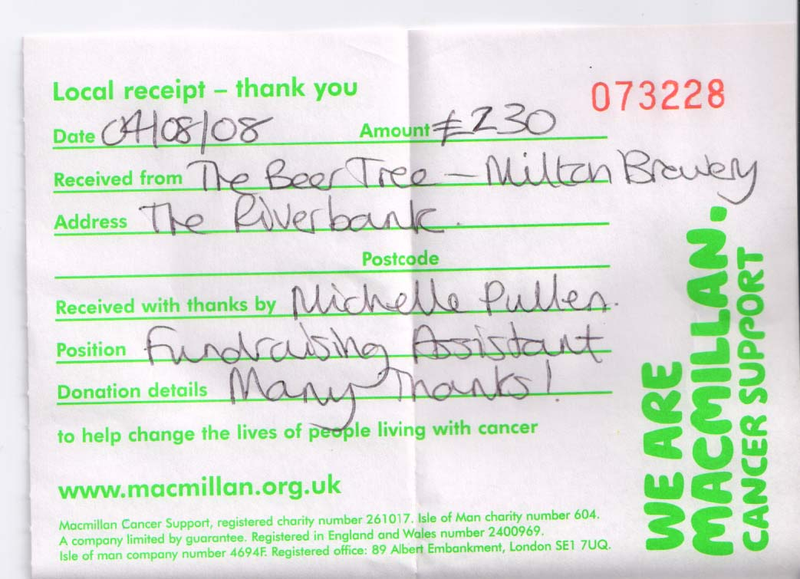 Local receipt – thank you
073228
Date 04/08/08 Amount £230
Received from The Beer Tree – Milton Brewery
Address The Riverbank.
Postcode
Received with thanks by Michelle Pullen.
Position Fundraising Assistant
Donation details Many Thanks!
to help change the lives of people living with cancer
www.macmillan.org.uk
Macmillan Cancer Support, registered charity number 261017. Isle of Man charity number 604.
A company limited by guarantee. Registered in England and Wales number 2400969.
Isle of man company number 4694F. Registered office: 89 Albert Embankment, London SE1 7UQ.
WE ARE
MACMILLAN.
CANCER SUPPORT